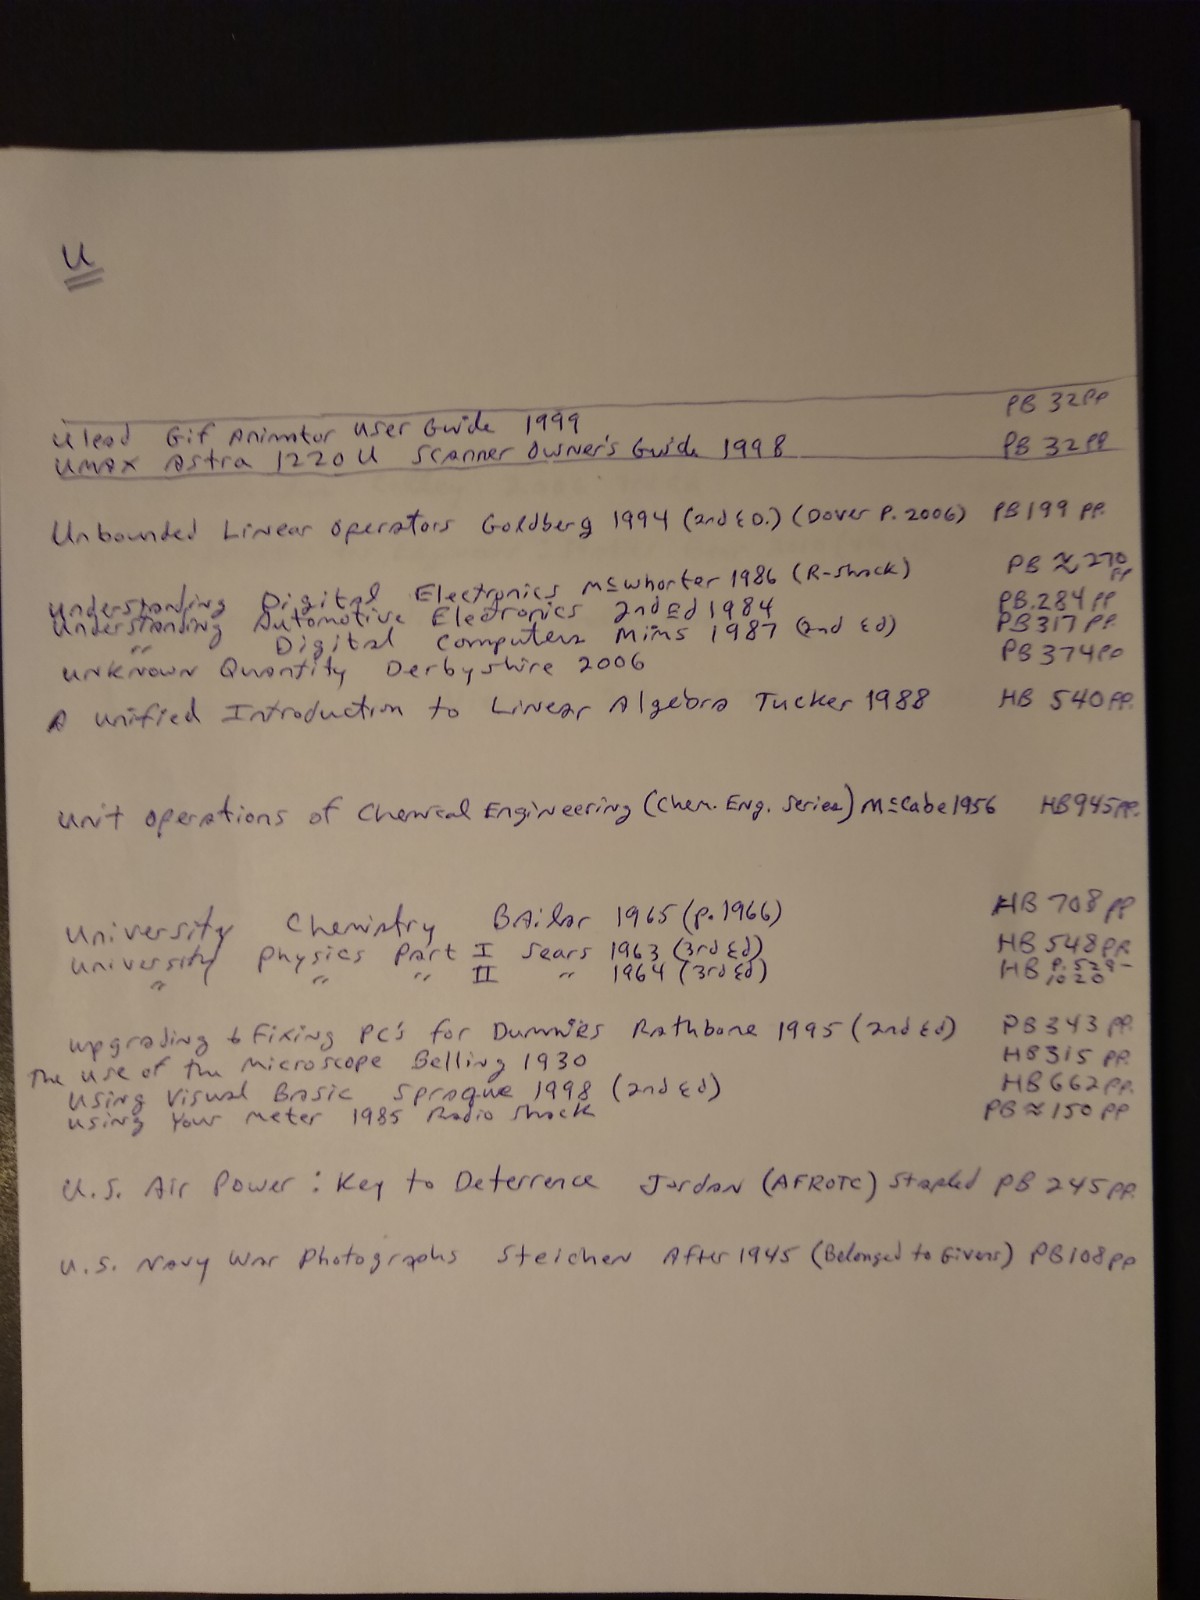 U
Ulead Gif Animator User Guide 1999 PB 32PP
UMAX Astra 1220U Scanner Owner's Guide 1998 PB 32PP
Unbounded Linear Operators Goldberg 1994 (2nd ED.) (Dover P. 2006) PB 199 PP.
Understanding Digital Electronics McWhorter 1986 (R-Shack) PB ≈ 270 PP
Understanding Automotive Electronics 2nd Ed 1984 PB.284 PP
" Digital Computers Mims 1987 (2nd Ed) PB 317 PP.
Unknown Quantity Derbyshire 2006 PB 374PP
A Unified Introduction to Linear Algebra Tucker 1988 HB 540PP.
Unit Operations of Chemical Engineering (Chem. Eng. Series) McCabe 1956 HB 945PP.
University Chemistry Bailar 1965 (p. 1966) HB 708 PP
University Physics Part I Sears 1963 (3rd Ed) HB 548 PP.
" " " II " 1964 (3rd Ed) HB P. 529-1020
Upgrading & Fixing PC's for Dummies Rathbone 1995 (2nd Ed) PB 343 PP.
The Use of the Microscope Belling 1930 HB 315 PP.
Using Visual Basic Sprague 1998 (2nd Ed) HB 662 PP.
Using Your Meter 1985 Radio Shack PB ≈ 150 PP
U.S. Air Power: Key to Deterrence Jordan (AFROTC) Stapled PB 245 PP.
U.S. Navy War Photographs Steichen After 1945 (Belonged to Givens) PB 108 PP